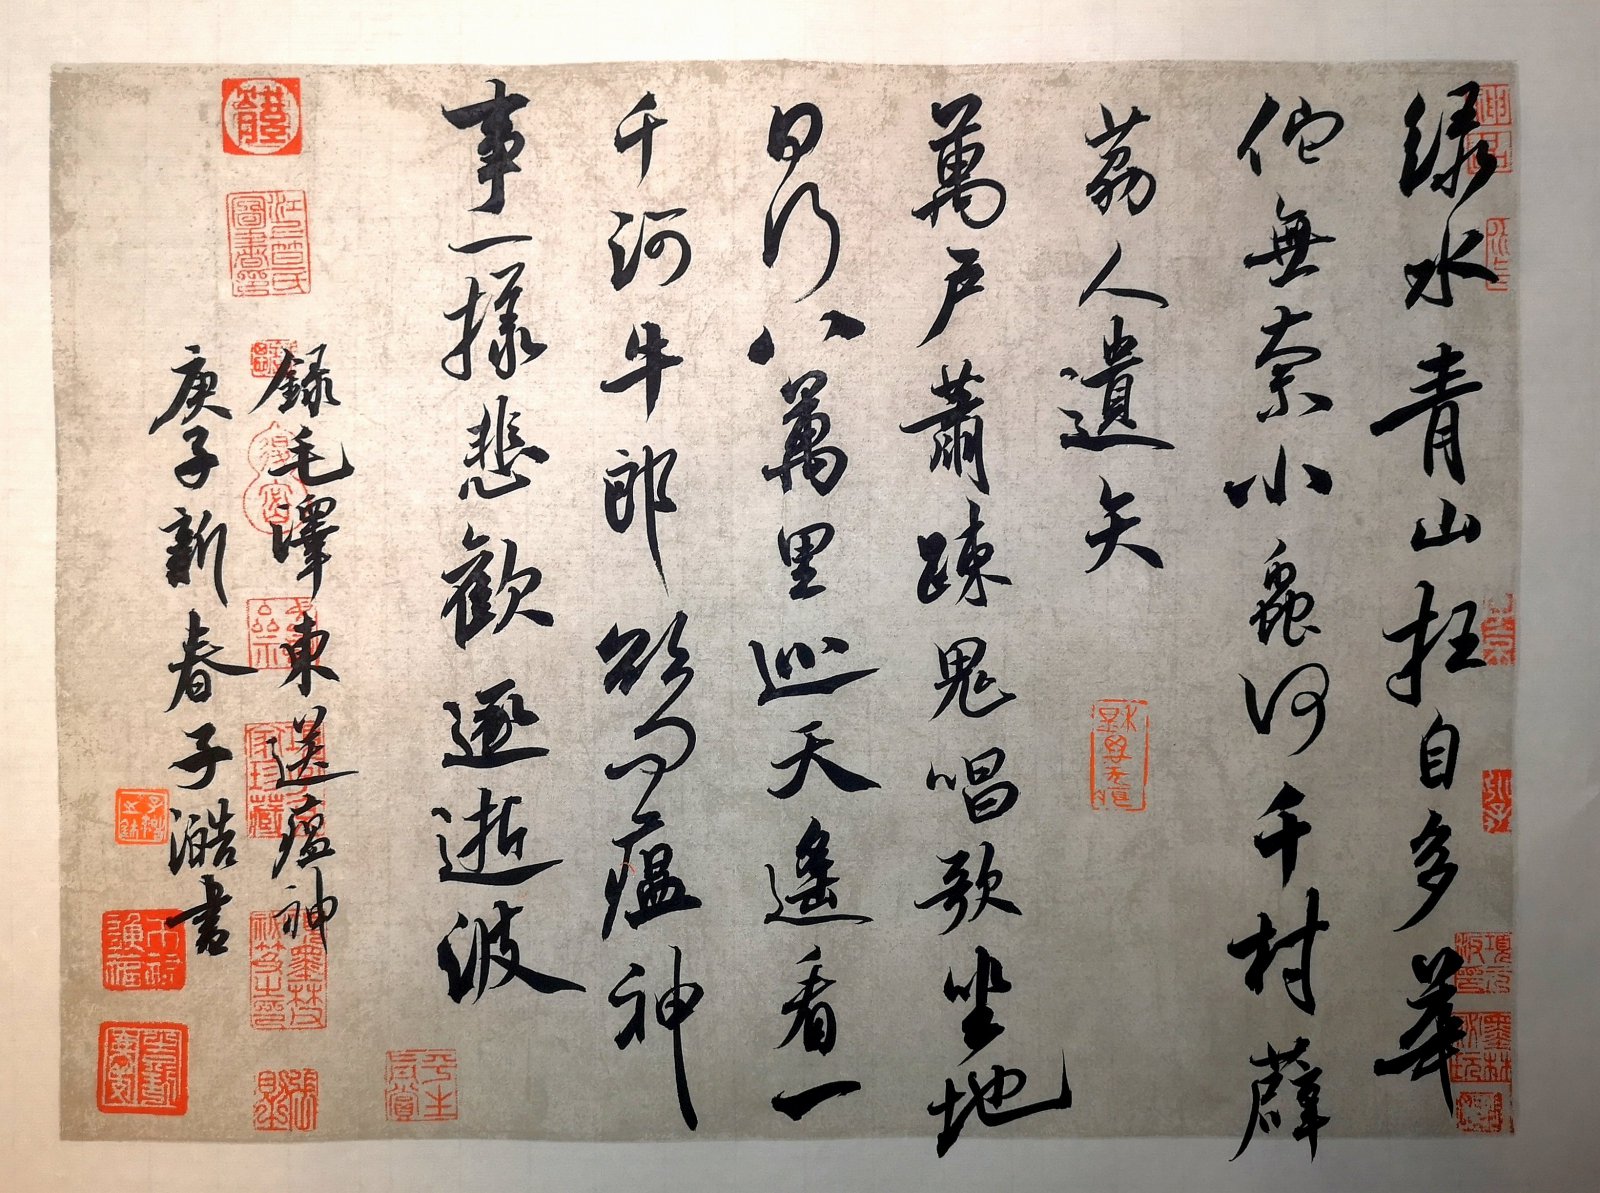 绿水青山枉自多華
佗無奈小蟲何千村薜
荔人遺矢
萬戶蕭疎鬼唱歌坐地
日行八萬里巡天遙看一
千河牛郎欲問瘟神
事一樣悲歡逐逝波
錄毛澤東送瘟神
庚子新春子澔書